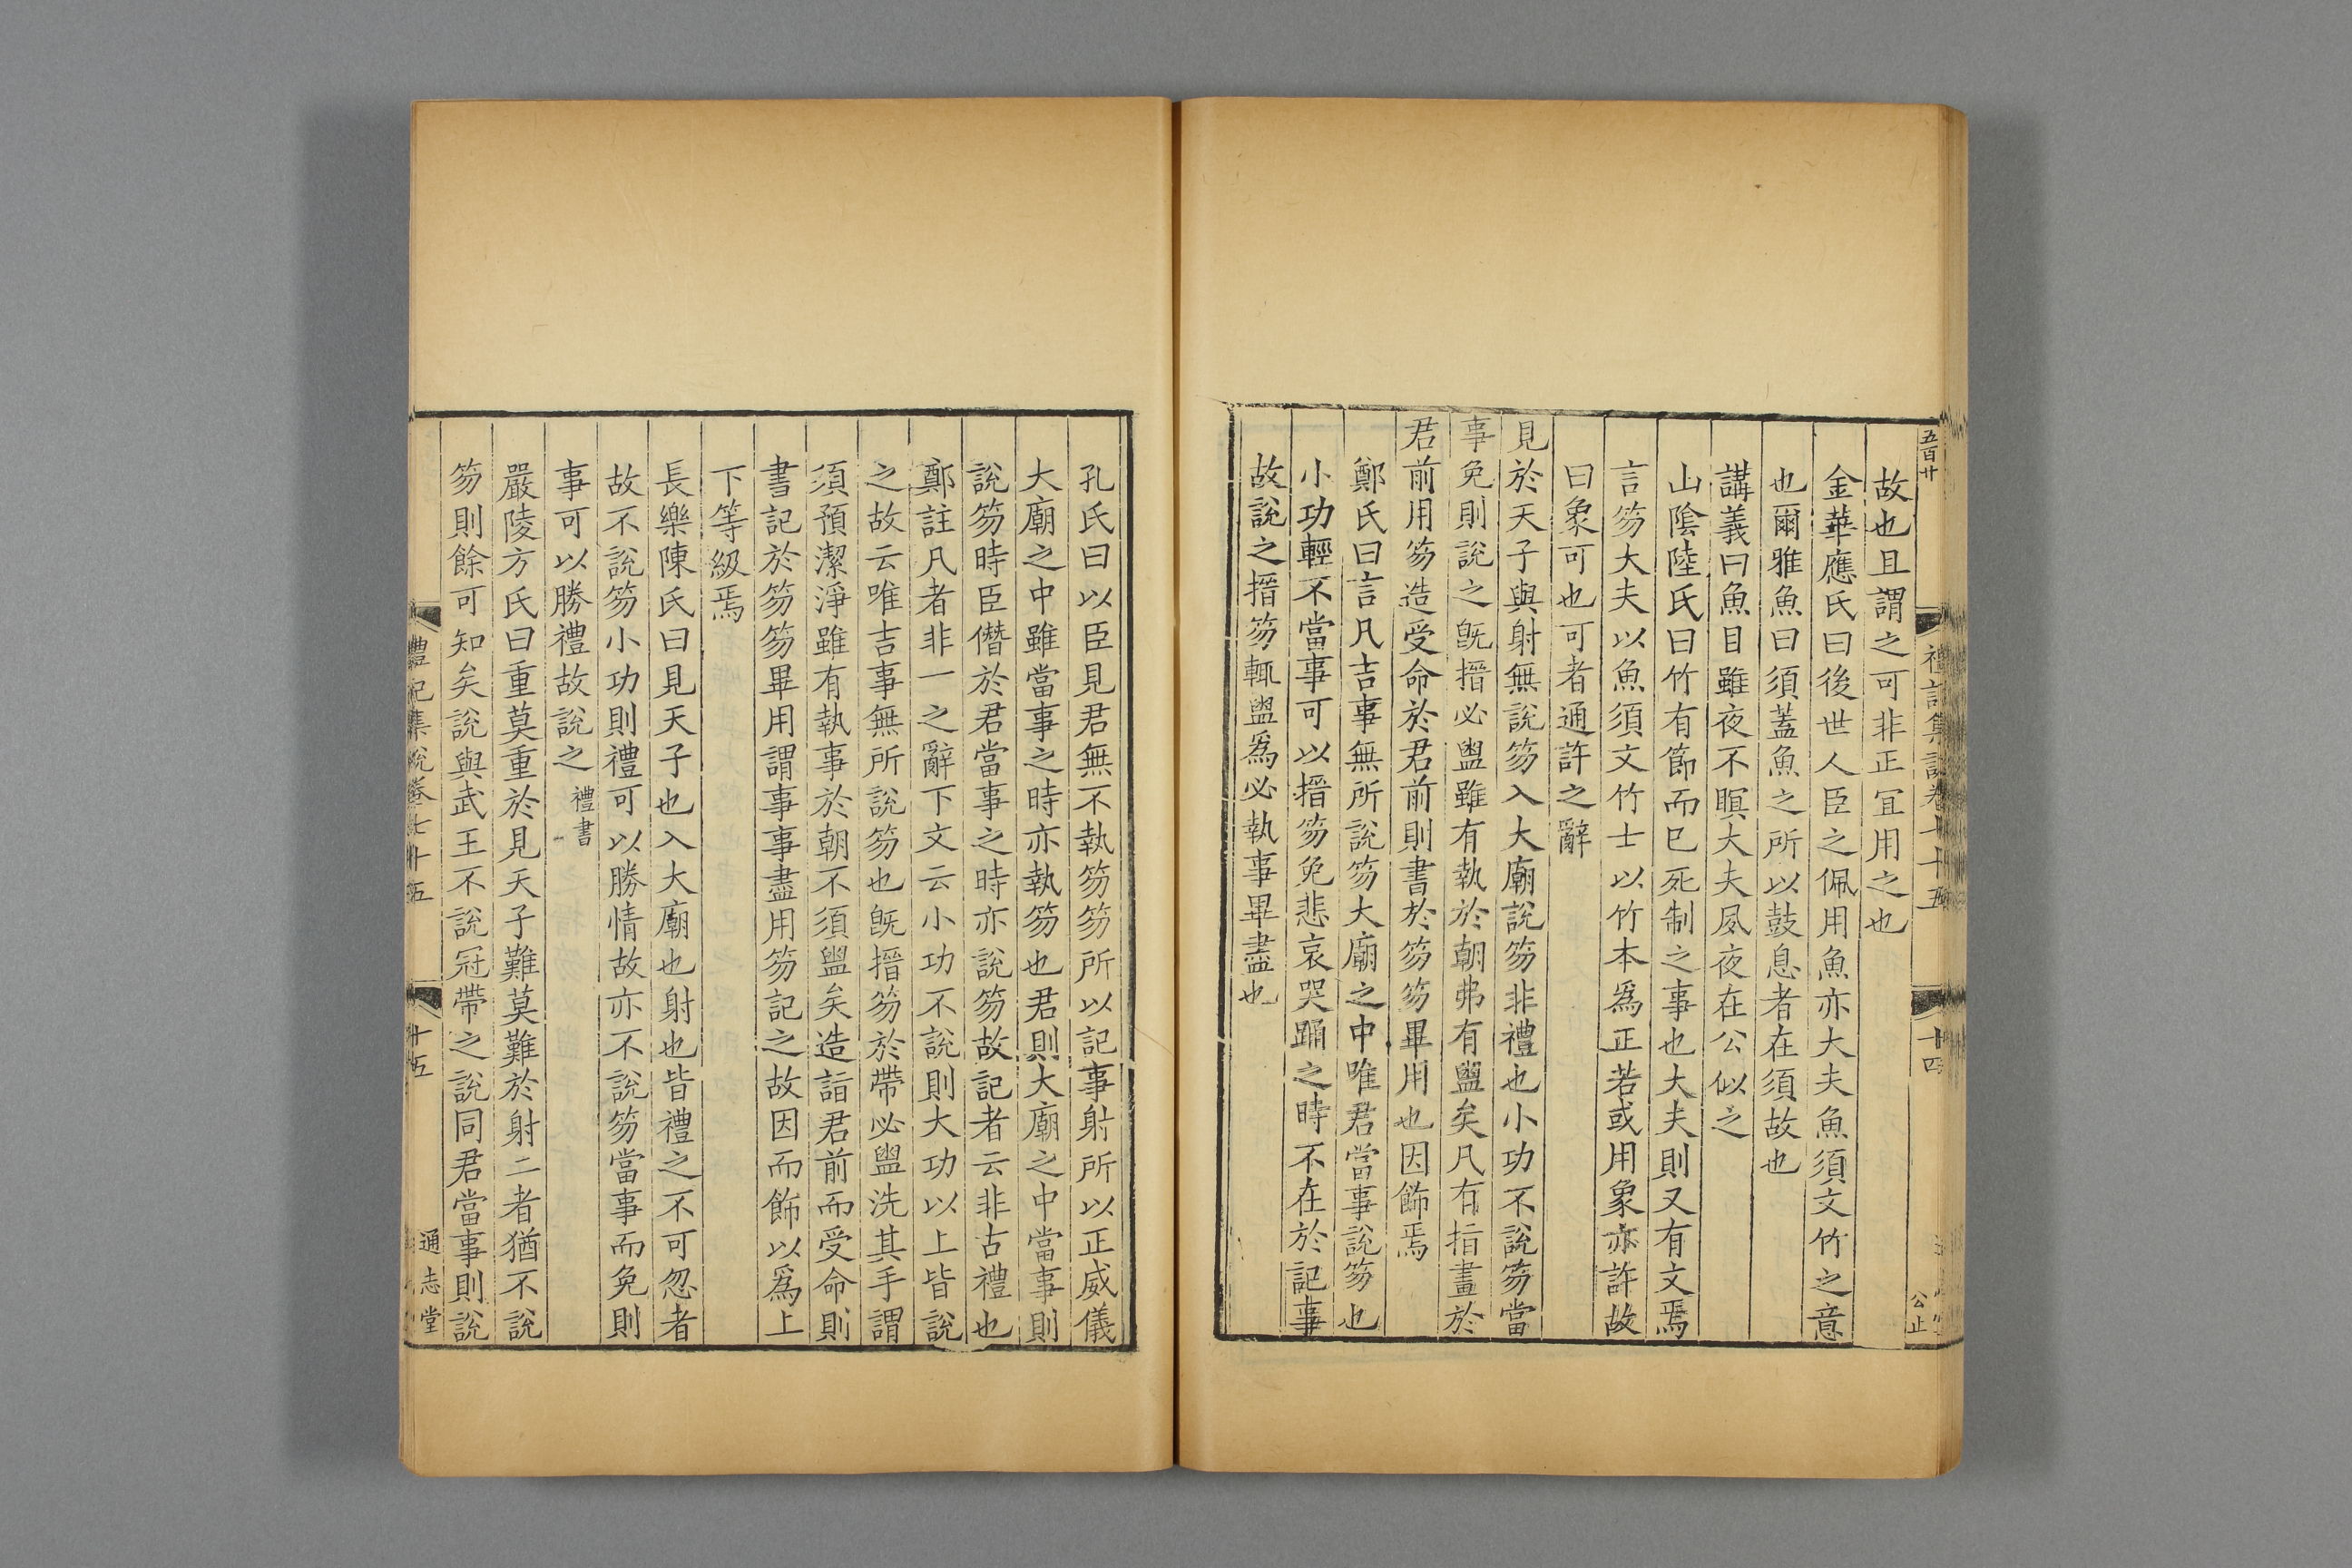 五百廿
禮記集說卷七十五
十四
公正
故也且謂之可非正宜用之也
金華應氏曰後世人臣之佩用魚亦大夫魚須文竹之意
也爾雅魚曰須蓋魚之所以鼓息者在須故也
講義曰魚目雖夜不瞑大夫夙夜在公似之
山隂陸氏曰竹有節而巳死制之事也大夫則又有文焉
言笏大夫以魚須文竹士以竹本爲正若或用象亦許故
曰象可也可者通許之辭
見於天子與射無說笏入大廟說笏非禮也小功不說笏當
事免則說之旣搢必盥雖有執於朝弗有盥矣凡有指畫於
君前用笏造受命於君前則書於笏笏畢用也因飾焉
鄭氏曰言凡吉事無所說笏大廟之中唯君當事說笏也
小功輕不當事可以搢笏免悲哀哭踊之時不在於記事
故說之搢笏輒盥爲必執事畢盡也
孔氏曰以臣見君無不執笏笏所以記事射所以正威儀
大廟之中雖當事之時亦執笏也君則大廟之中當事則
說笏時臣僭於君當事之時亦說笏故記者云非古禮也
鄭註凡者非一之辭下文云小功不說則大功以上皆說
之故云唯吉事無所說笏也旣搢笏於帶必盥洗其手謂
須預潔淨雖有執事於朝不須盥矣造詣君前而受命則
書記於笏笏畢用謂事事盡用笏記之故因而飾以爲上
下等級焉
長樂陳氏曰見天子也入大廟也射也皆禮之不可忽者
故不說笏小功則禮可以勝情故亦不說笏當事而免則
事可以勝禮故說之禮書
嚴陵方氏曰重莫重於見天子難莫難於射二者猶不說
笏則餘可知矣說與武王不說冠帶之說同君當事則說
禮記集說卷七十五
十五
通志堂